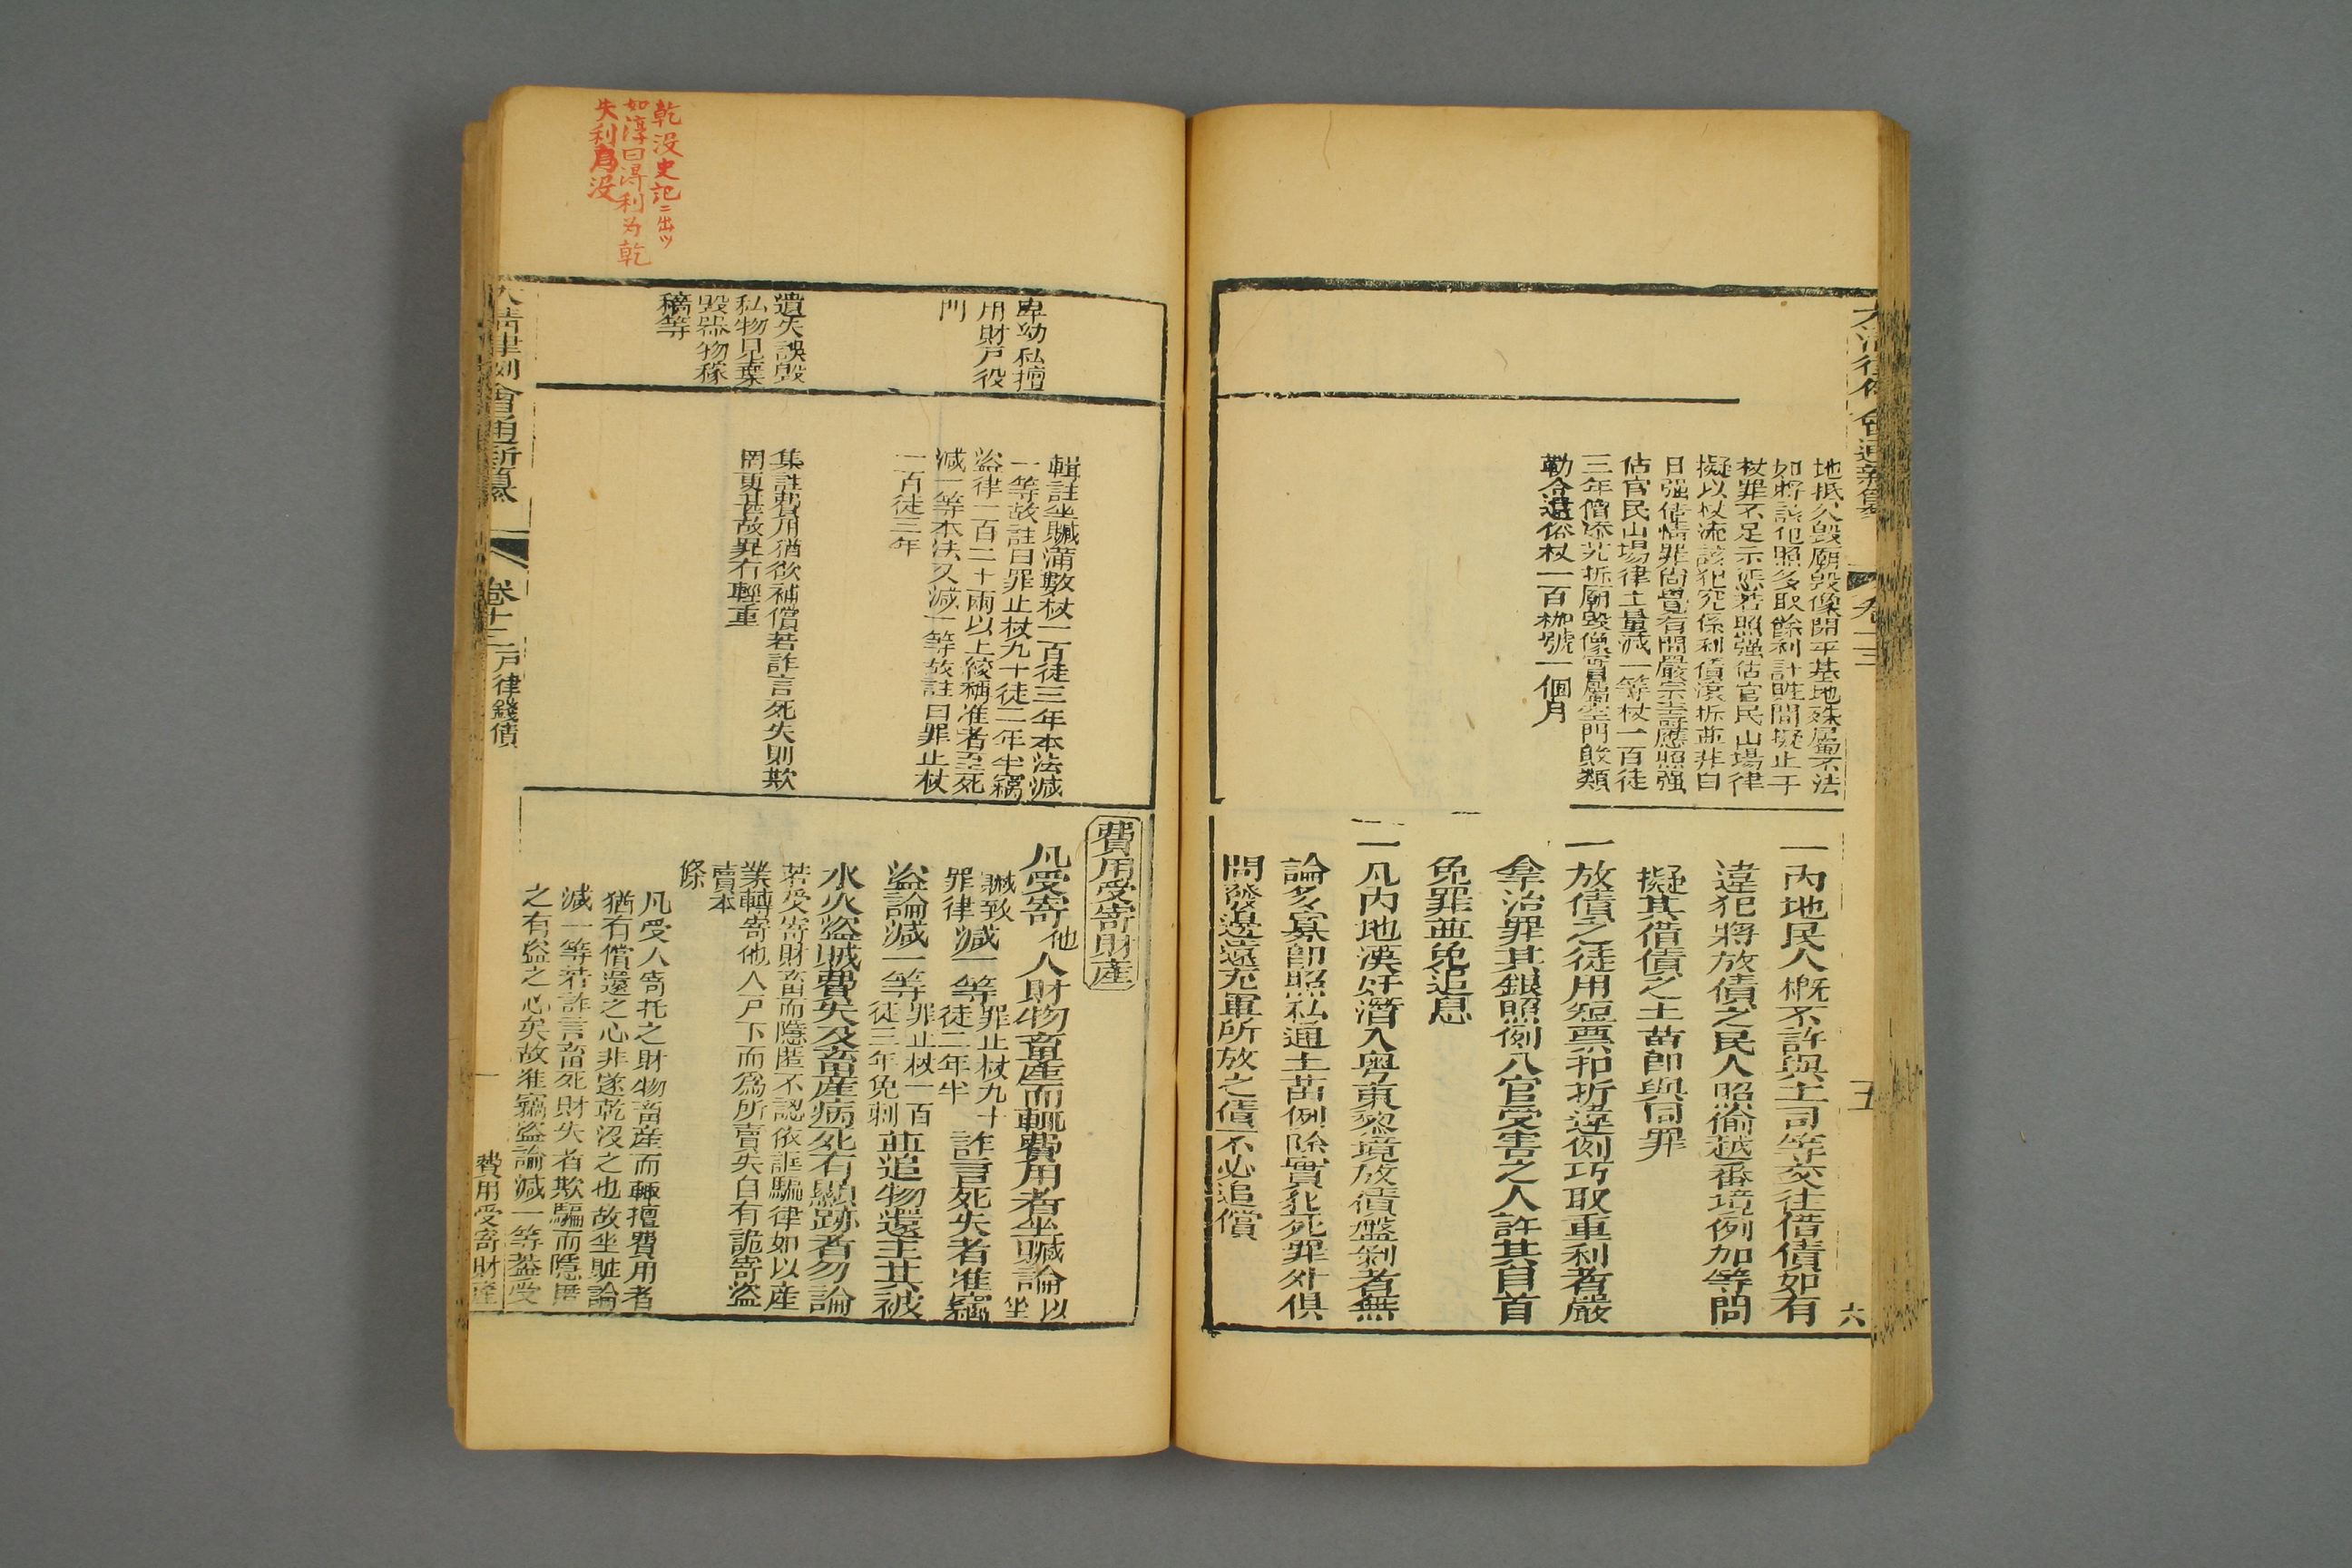 地抵欠毀廟毀像開平基地殊屬不法
如將該犯照多取餘利計贓間擬止于
杖罪不足示懲若照强估官民山場律
擬以杖流該犯究係利債滾折並非白
日强估情罪尚覺有間嚴宗壽應照强
估官民山場律土量減一等杖一百徒
三年僧添北拆廟毀像實屬空門敗類
勒令還俗杖一百枷號一個月
一內地民人槪不許與土司等交往借債如有
違犯將放債之民人照偷越番境例加等問
擬其借債之土苗卽與同罪
一放債之徒用短票扣折違例巧取重利者嚴
拿治罪其銀照例入官受害之人許其自首
免罪並免追息
一凡內地漢奸潛入粤東黎境放債盤剝者無
論多寡卽照私通土苗例除實犯死罪外俱
問發邊遠充軍所放之債不必追償
五
六
乾没史記ニ出ツ
如淳曰得利为乾
失利爲没
卑幼私擅
用財戸役
門
遺失誤毀
私物見棄
毀器物稼
穡等
輯註坐贓滿數杖一百徒三年本法減
一等故註曰罪止杖九十徒二年半竊
盜律一百二十兩以上絞稱准者至死
減一等本法又減一等故註曰罪止杖
一百徒三年
集註費用猶欲補償若詐言死失則欺
罔更甚故罪有輕重
費用受寄財產
凡受寄他人財物畜產而輒費用者坐贓論以坐
贓致罪律減一等罪止杖九十徒二年半詐言死失者准竊
盜論減一等罪止杖一百徒三年免刺並追物還主其被
水火盜賊費失及畜產病死有顯跡者勿論
若受寄財畜而隱匿不認依誆騙律如以產
業轉寄他人戸下而爲所賣失自有詭寄盜
賣本
條
凡受人寄托之財物畜産而輒擅費用者
猶有償還之心非遂乾没之也故坐贓論
減一等若詐言畜死財失者欺騙而隱匿
之有盜之心矣故准竊盜論減一等葢受
大清律例會通新纂
卷十三
戸律錢債
費用受寄財產